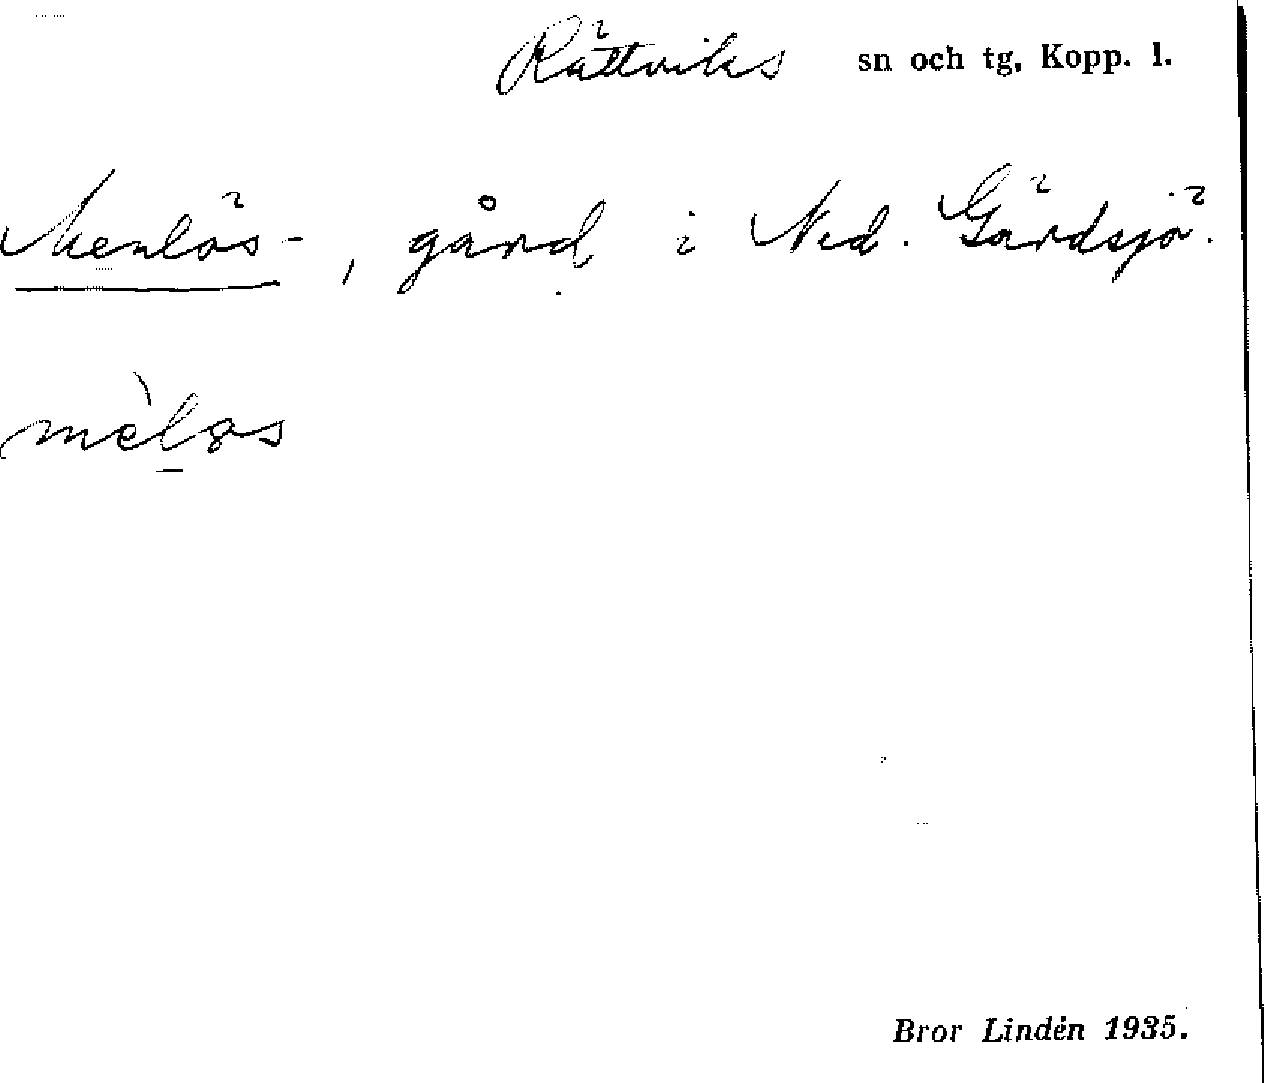 Rättviks sn och tg, Kopp. l.
Menlös-, gård i Ned. Gärdsjö.
mèl̲øs
Bror Lindén 1935.